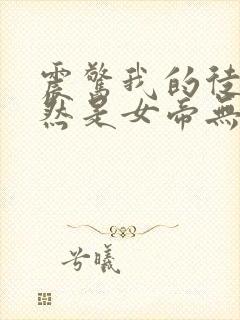 震驚我的徒
然是女帝無
兮曦